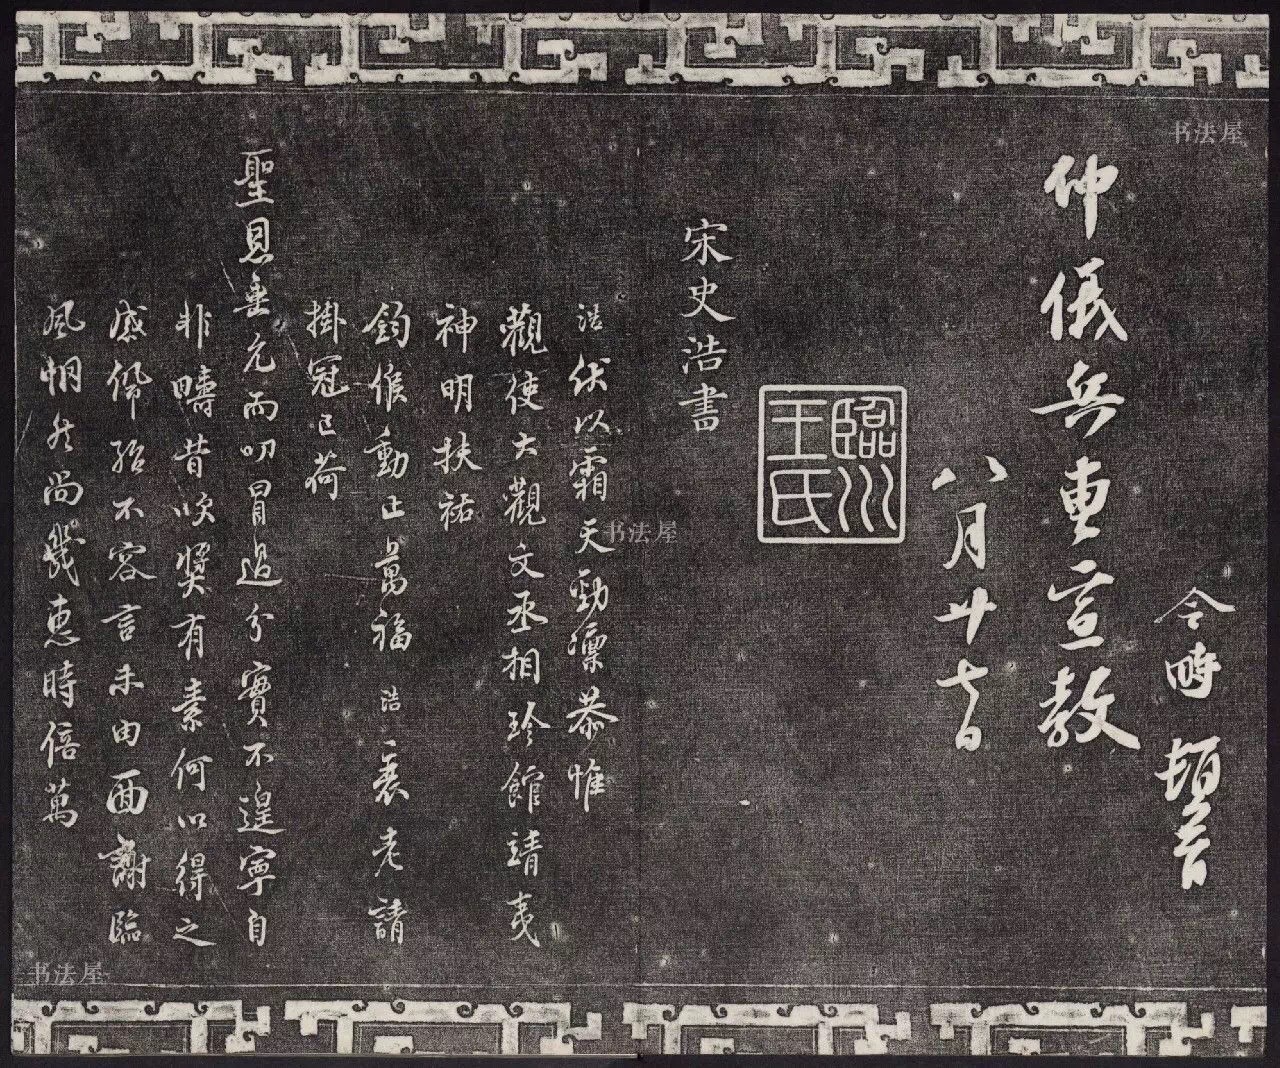 令時頓首
仲儀兵曹宣教
八月廿七日
臨川
王氏
宋史浩書
浩伏以霜天勁凜恭惟
觀使大觀文丞相珍館靖夷
神明扶祐
鈞候動止萬福浩衰老請
掛冠已荷
聖恩垂允而叨冒過分實不遑寧自
非疇昔吹獎有素何以得之
感佩殆不容言未由面謝臨
風惘然尚幾惠時倍萬
书法屋
书法屋
书法屋